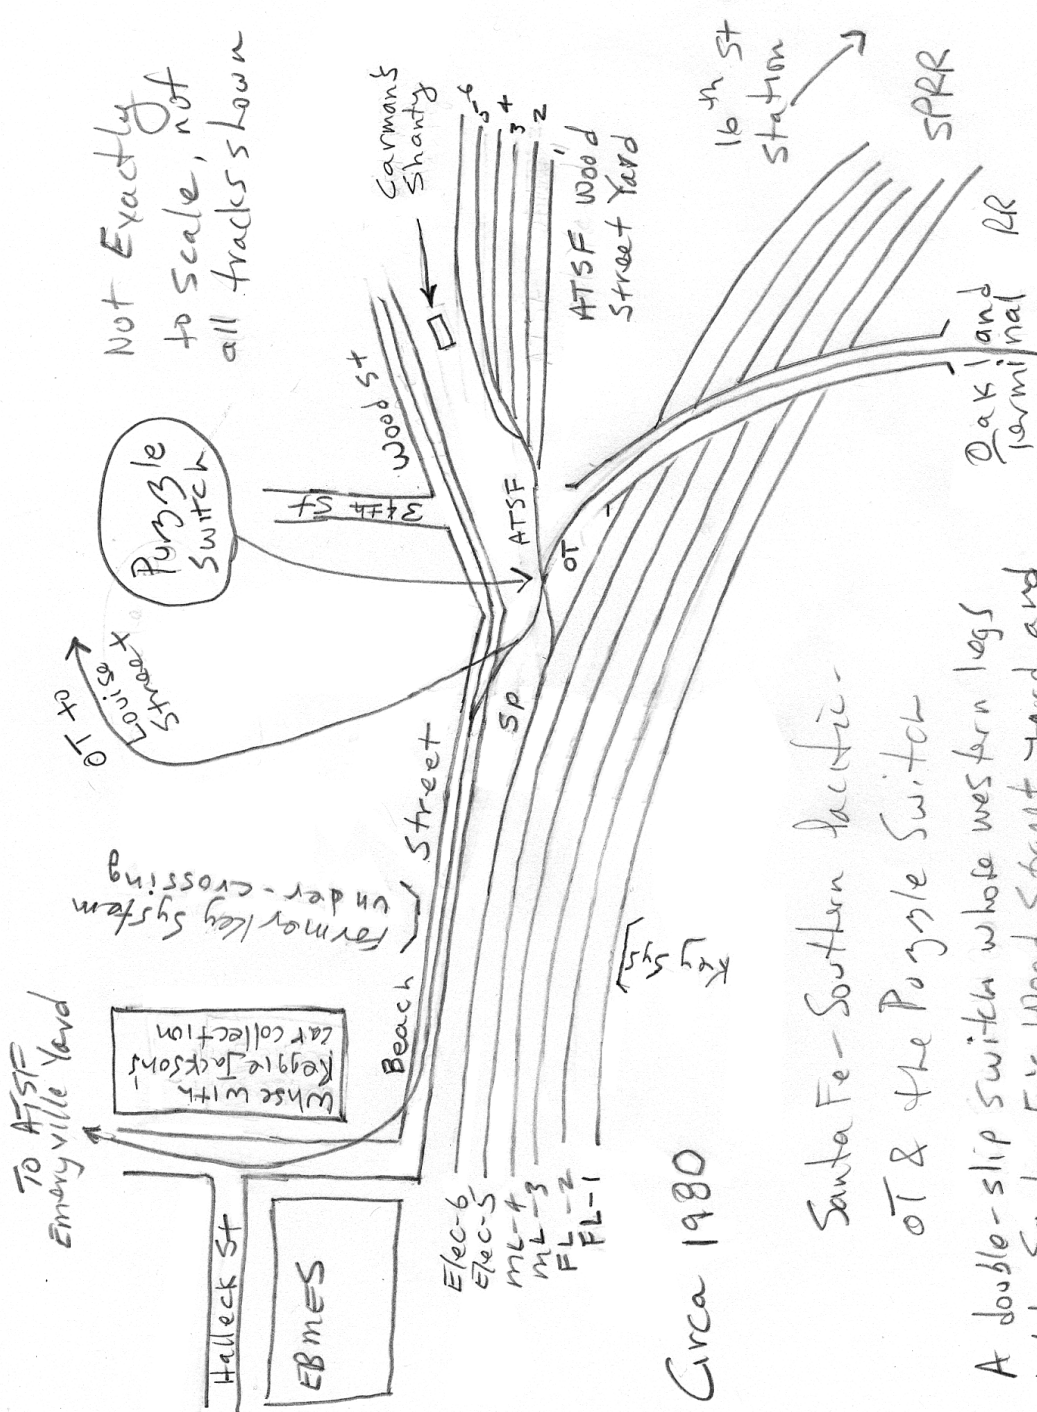 Not Exactly
to Scale, not
all tracks shown
Puzzle
Switch
Carman's
Shanty
5-6
4
3
2
1
ATSF Wood
Street Yard
16th St
Station
SPRR
Oakland
Terminal RR
Wood St
34th St
ATSF
OT
SP
OT to
Louise
Street
Street
Beach
Former Key System
under-crossing
Key Sys
To ATSF
Emeryville Yard
Whse with
Reggie Jackson's
car collection
Halleck St
EBMES
Elec-6
Elec-5
ML-4
ML-3
FL-2
FL-1
Circa 1980
Santa Fe - Southern Pacific -
OT & the Puzzle Switch
A double-slip switch whose western legs